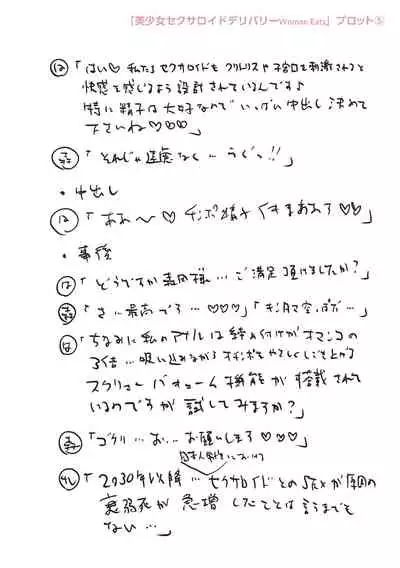 「美少女セクサロイドデリバリーWoman Eats」プロット⑤
は「はい♡私たちセクサロイドもクリトリスや子宮口を刺激されると
快感を感じるよう設計されているんです♪
特に精子は大好なので いっぱい中出し決めて
下さいね♡♡♡」
「それじゃ遠慮なく…うぐっ!!」
・中出し
は「ああ～♡
・事後
は「どうですか 様…ご満足頂けましたか?」
「さ…最高です…♡♡♡」「キンタマ空っぽだ…」
は「ちなみに私のアナルは締め付けがオマンコの
3倍…吸い込みながらオチンポをやさしくしごき上げる
スクリューバキューム機能が搭載されて
いるのですが試してみますか?」
「ゴクリ…お…お願いします♡♡♡」
ナレ「2030年以降…セクサロイドとのSEXが原因の
衰弱死が急増したことは言うまでも
ない…」